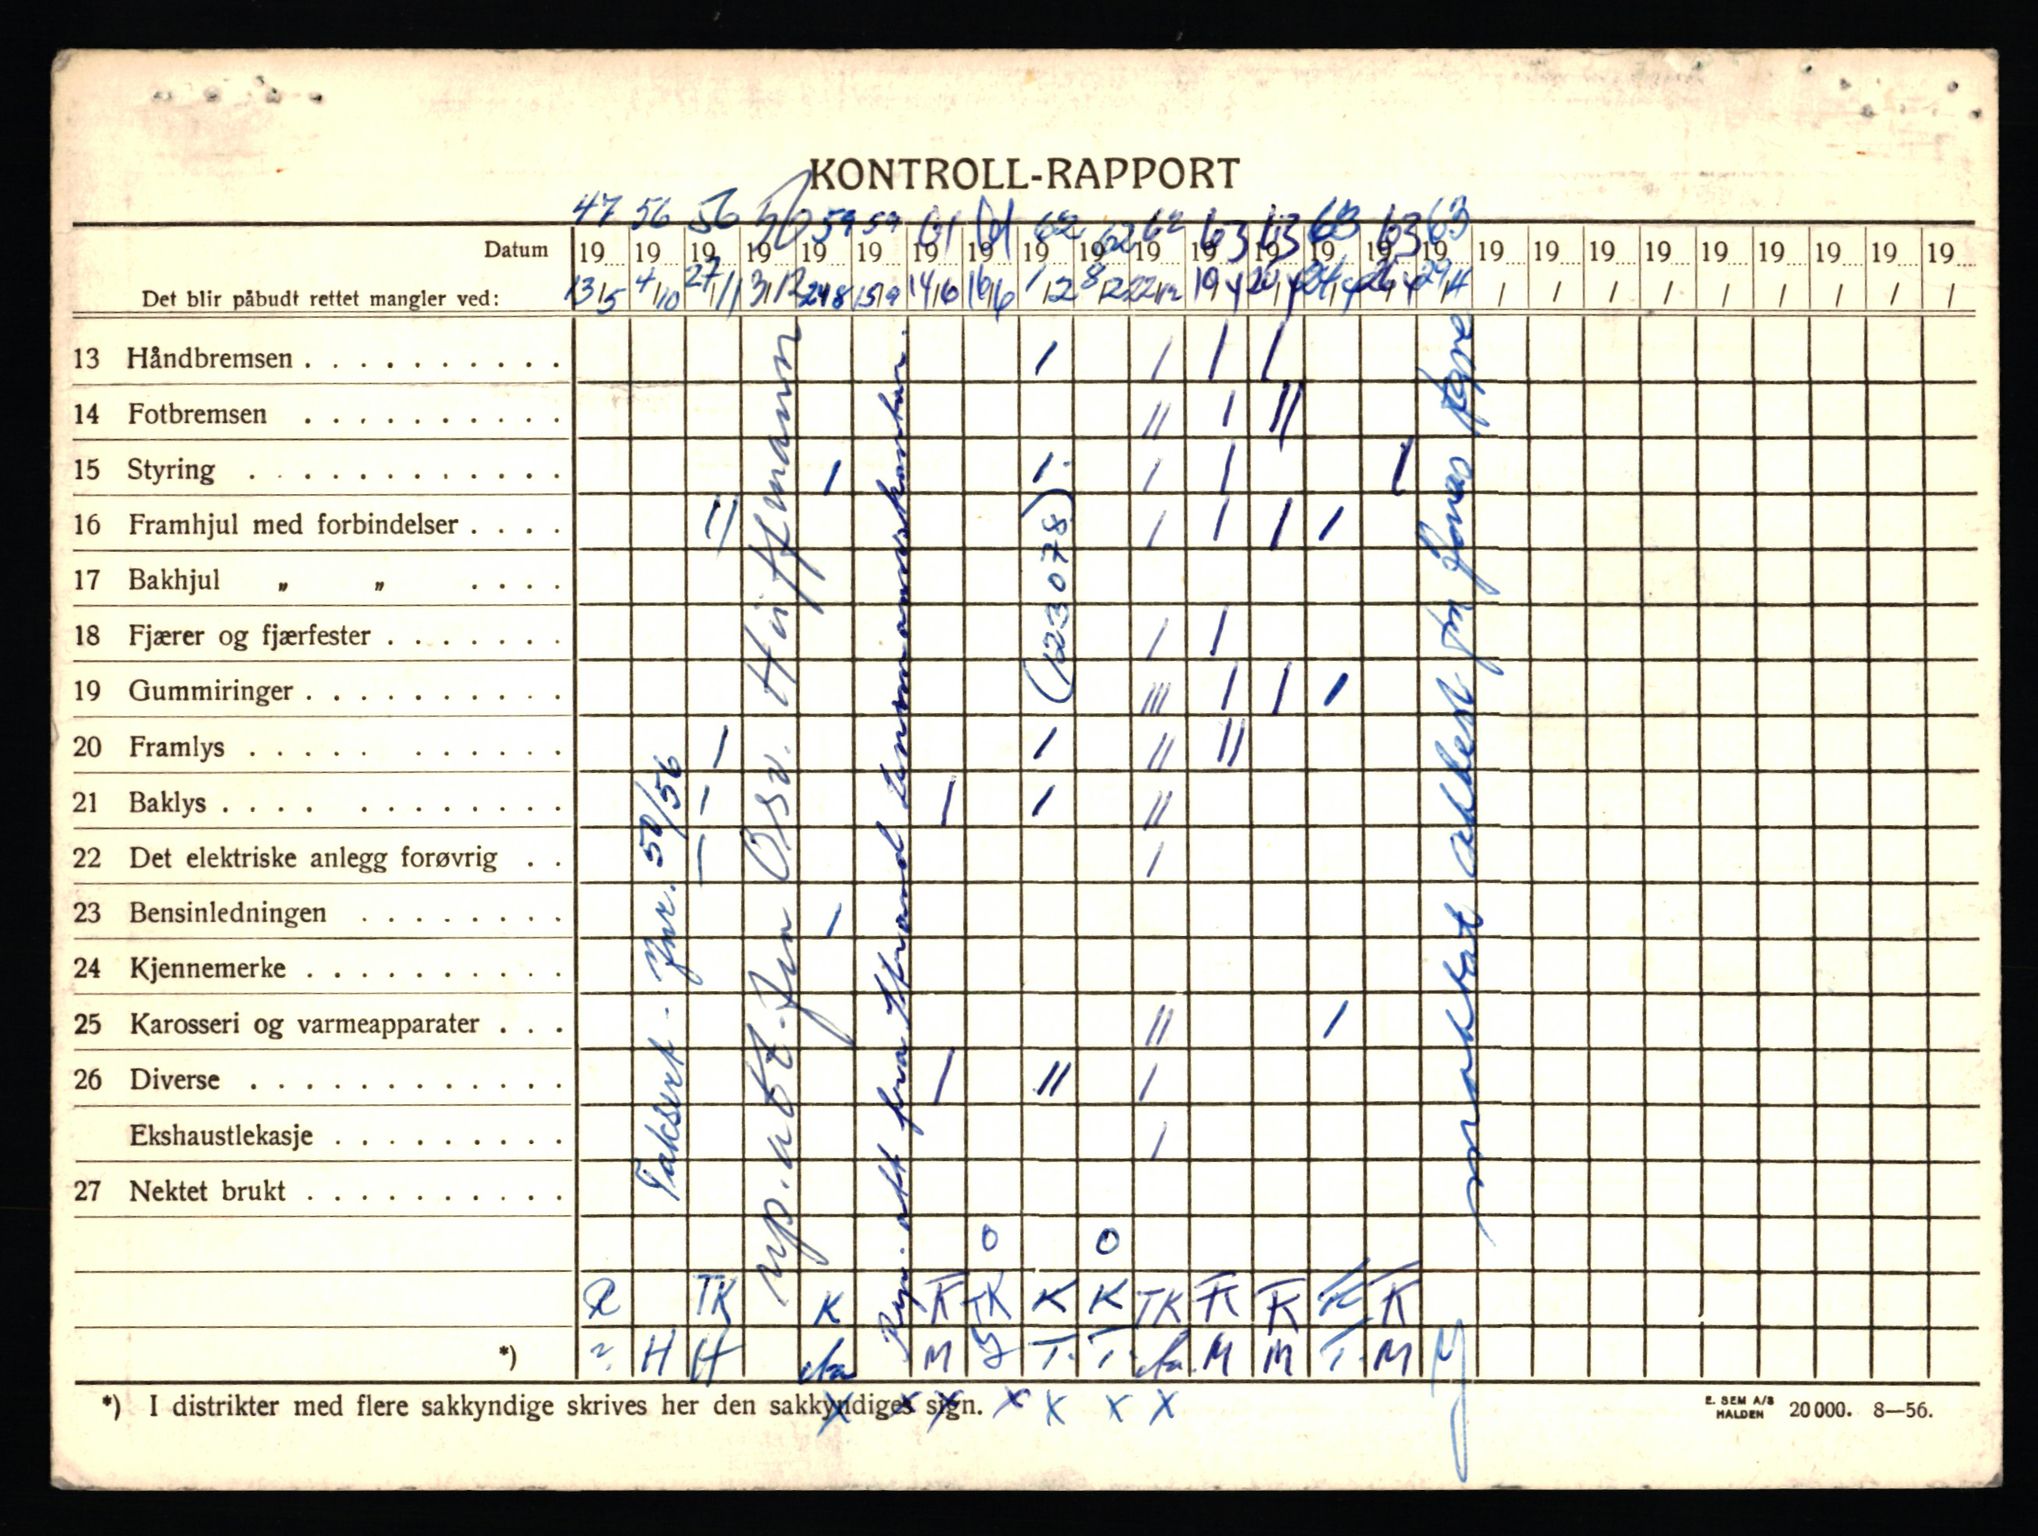 KONTROLL-RAPPORT
47 56 56 56 59 59 61 61 62 62 62 63 63 63 63 63
Datum 19 19 19 19 19 19 19 19 19 19 19 19 19 19 19 19 19 19 19 19 19 19 19 19 19
Det blir påbudt rettet mangler ved: 13/5 4/10 27/11 3/12 24/8 15/9 14/6 16/6 1/12 8/12 22/12 19/4 20/4 24/4 26/4 29/4 / / / / / / / / /
13 Håndbremsen . . . . . . . . . . / / / /
14 Fotbremsen . . . . . . . . . . // / //
15 Styring . . . . . . . . . . . . / / / / /
16 Framhjul med forbindelser . . . . // / / / /
17 Bakhjul „ „ . . . .
18 Fjærer og fjærfester . . . . . . . / /
19 Gummiringer . . . . . . . . . . /// / / /
20 Framlys . . . . . . . . . . / / // //
21 Baklys . . . . . . . . . . . . / / / //
22 Det elektriske anlegg forøvrig . . / /
23 Bensinledningen . . . . . . . . /
24 Kjennemerke . . . . . . . . . .
25 Karosseri og varmeapparater . . . // /
26 Diverse . . . . . . . . . . . . / // /
Ekshaustlekasje . . . . . . . . . /
27 Nektet brukt . . . . . . . . . .
Taksert - Jnr. 50/56
attest fra
Rep. att fra Strand Lensmannskontor.
(123078)
mottatt attest fra Jonas
O O
R TK K K TK K K TK K K K K
*) H H M T. T. M M T. M
*) I distrikter med flere sakkyndige skrives her den sakkyndiges sign.
X X X X X X X
E. SEM A/S
HALDEN 20 000. 8—56.